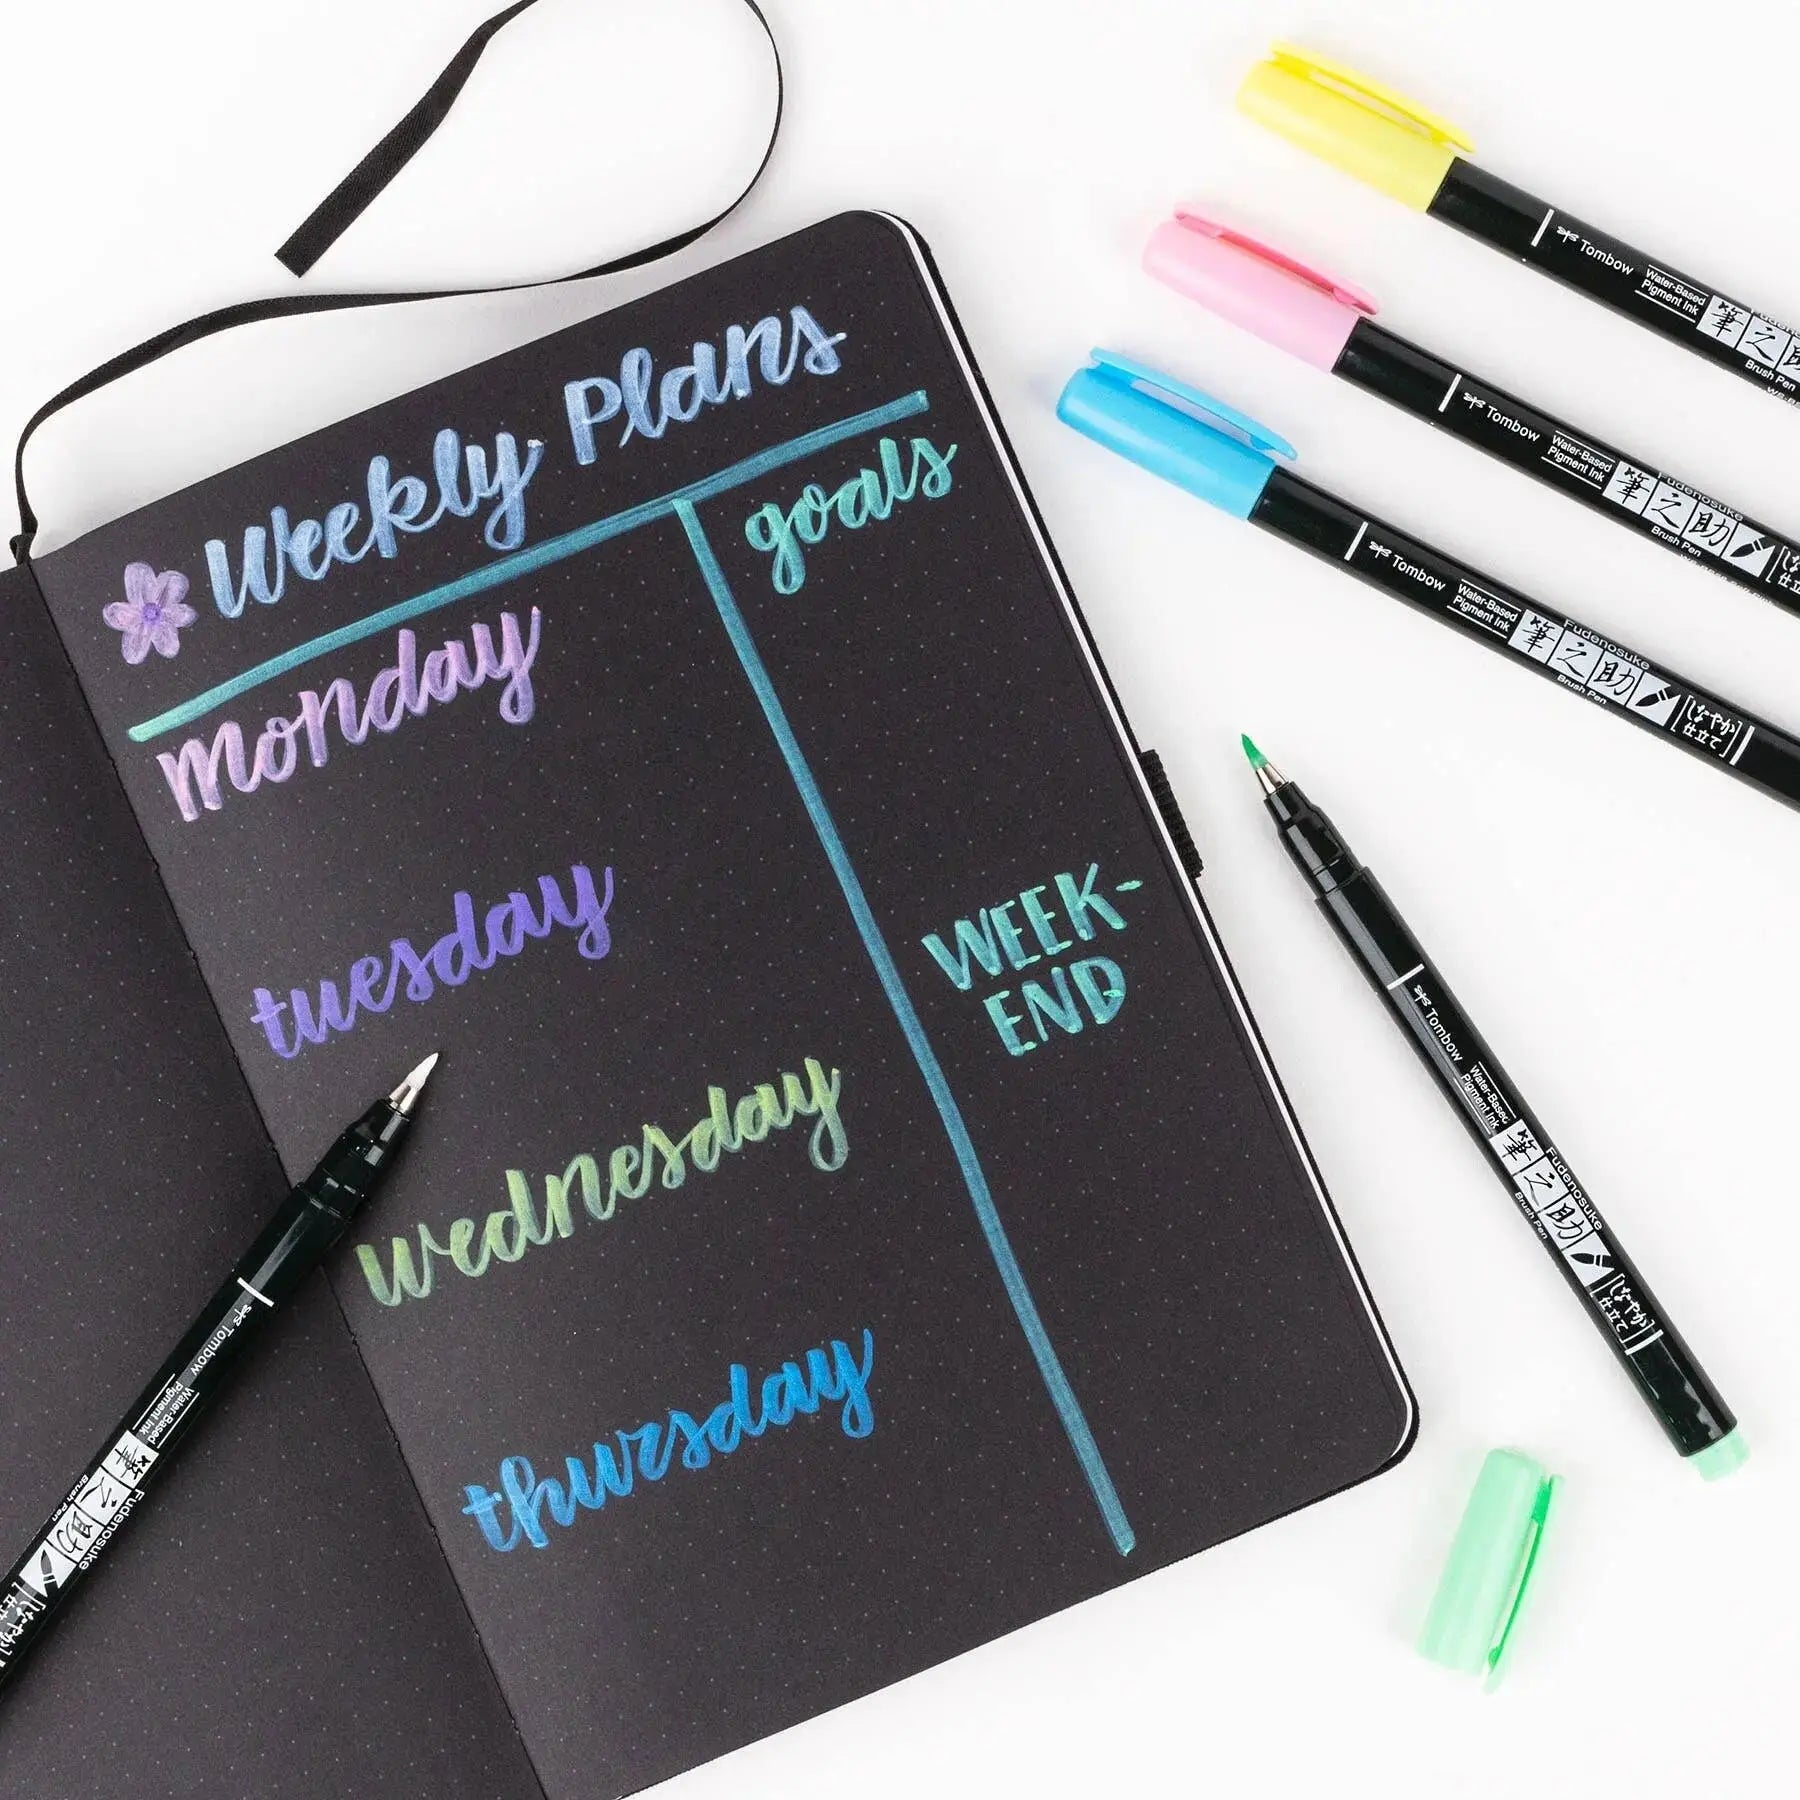 Weekly Plans
goals
monday
tuesday
wednesday
thursday
WEEK-
END
Tombow
Water-Based
Pigment Ink
筆之
Fudenosuke
Brush Pen
Tombow
Water-Based
Pigment Ink
筆之助
Fudenosuke
Brush Pen
しなやか
仕立て
Tombow
Water-Based
Pigment Ink
筆之助
Fudenosuke
Brush Pen
しなやか
仕立て
Tombow
Water-Based
Pigment Ink
筆之助
Fudenosuke
Brush Pen
しなやか
仕立て
Tombow
Water-Based
Pigment Ink
筆之助
Fudenosuke
Brush Pen
しなやか
仕立て